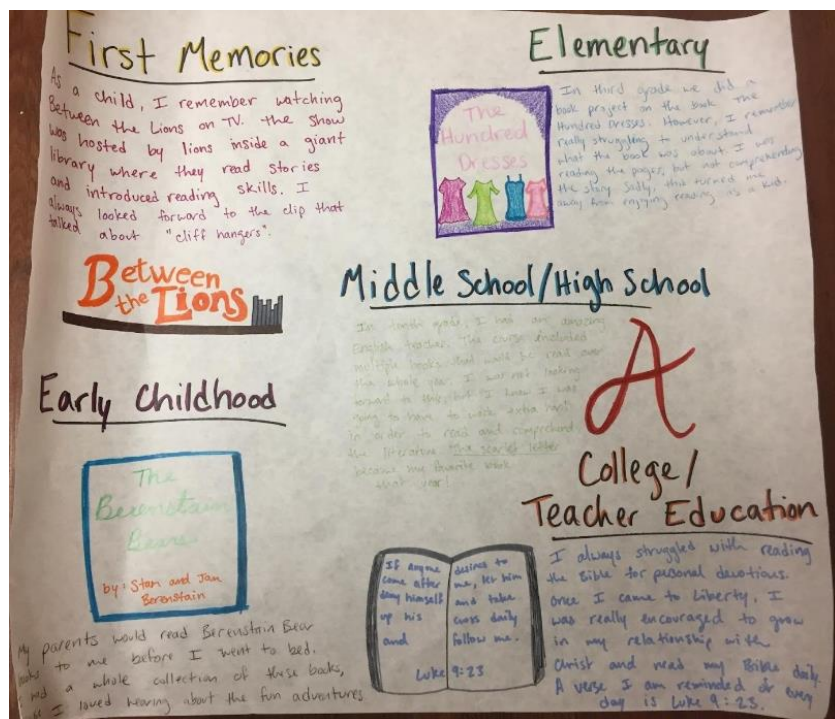 First Memories
As a child, I remember watching
Between the Lions on TV. The show
was hosted by lions inside a giant
library where they read stories
and introduced reading skills. I
always looked forward to the clip that
talked about "cliff hangers".
Between
the Lions
Early Childhood
The
Berenstain
Bears
by: Stan and Jan
Berenstain
My parents would read Berenstain Bear
books to me before I went to bed.
had a whole collection of these books,
I loved hearing about the fun adventures
Elementary
The
Hundred
Dresses
In third grade we did a
book project on the book The
Hundred Dresses. However, I remember
really struggling to understand
what the book was about. I was
reading the pages, but not comprehending
the story. Sadly, this turned me
away from enjoying reading as a kid.
Middle School/High School
In tenth grade, I had an amazing
English teacher. The course included
multiple books that would be read over
the whole year. I was not looking
forward to this, but I knew I was
going to have to work extra hard
in order to read and comprehend
the literature. The Scarlet Letter
became my favorite book
that year!
A
College/
Teacher Education
If anyone desires to
come after me, let him
deny himself and take
up his cross daily
and follow me.
Luke 9:23
I always struggled with reading
the Bible for personal devotions.
Once I came to Liberty, I
was really encouraged to grow
in my relationship with
Christ and read my Bible daily.
A verse I am reminded of every
day is Luke 9:23.